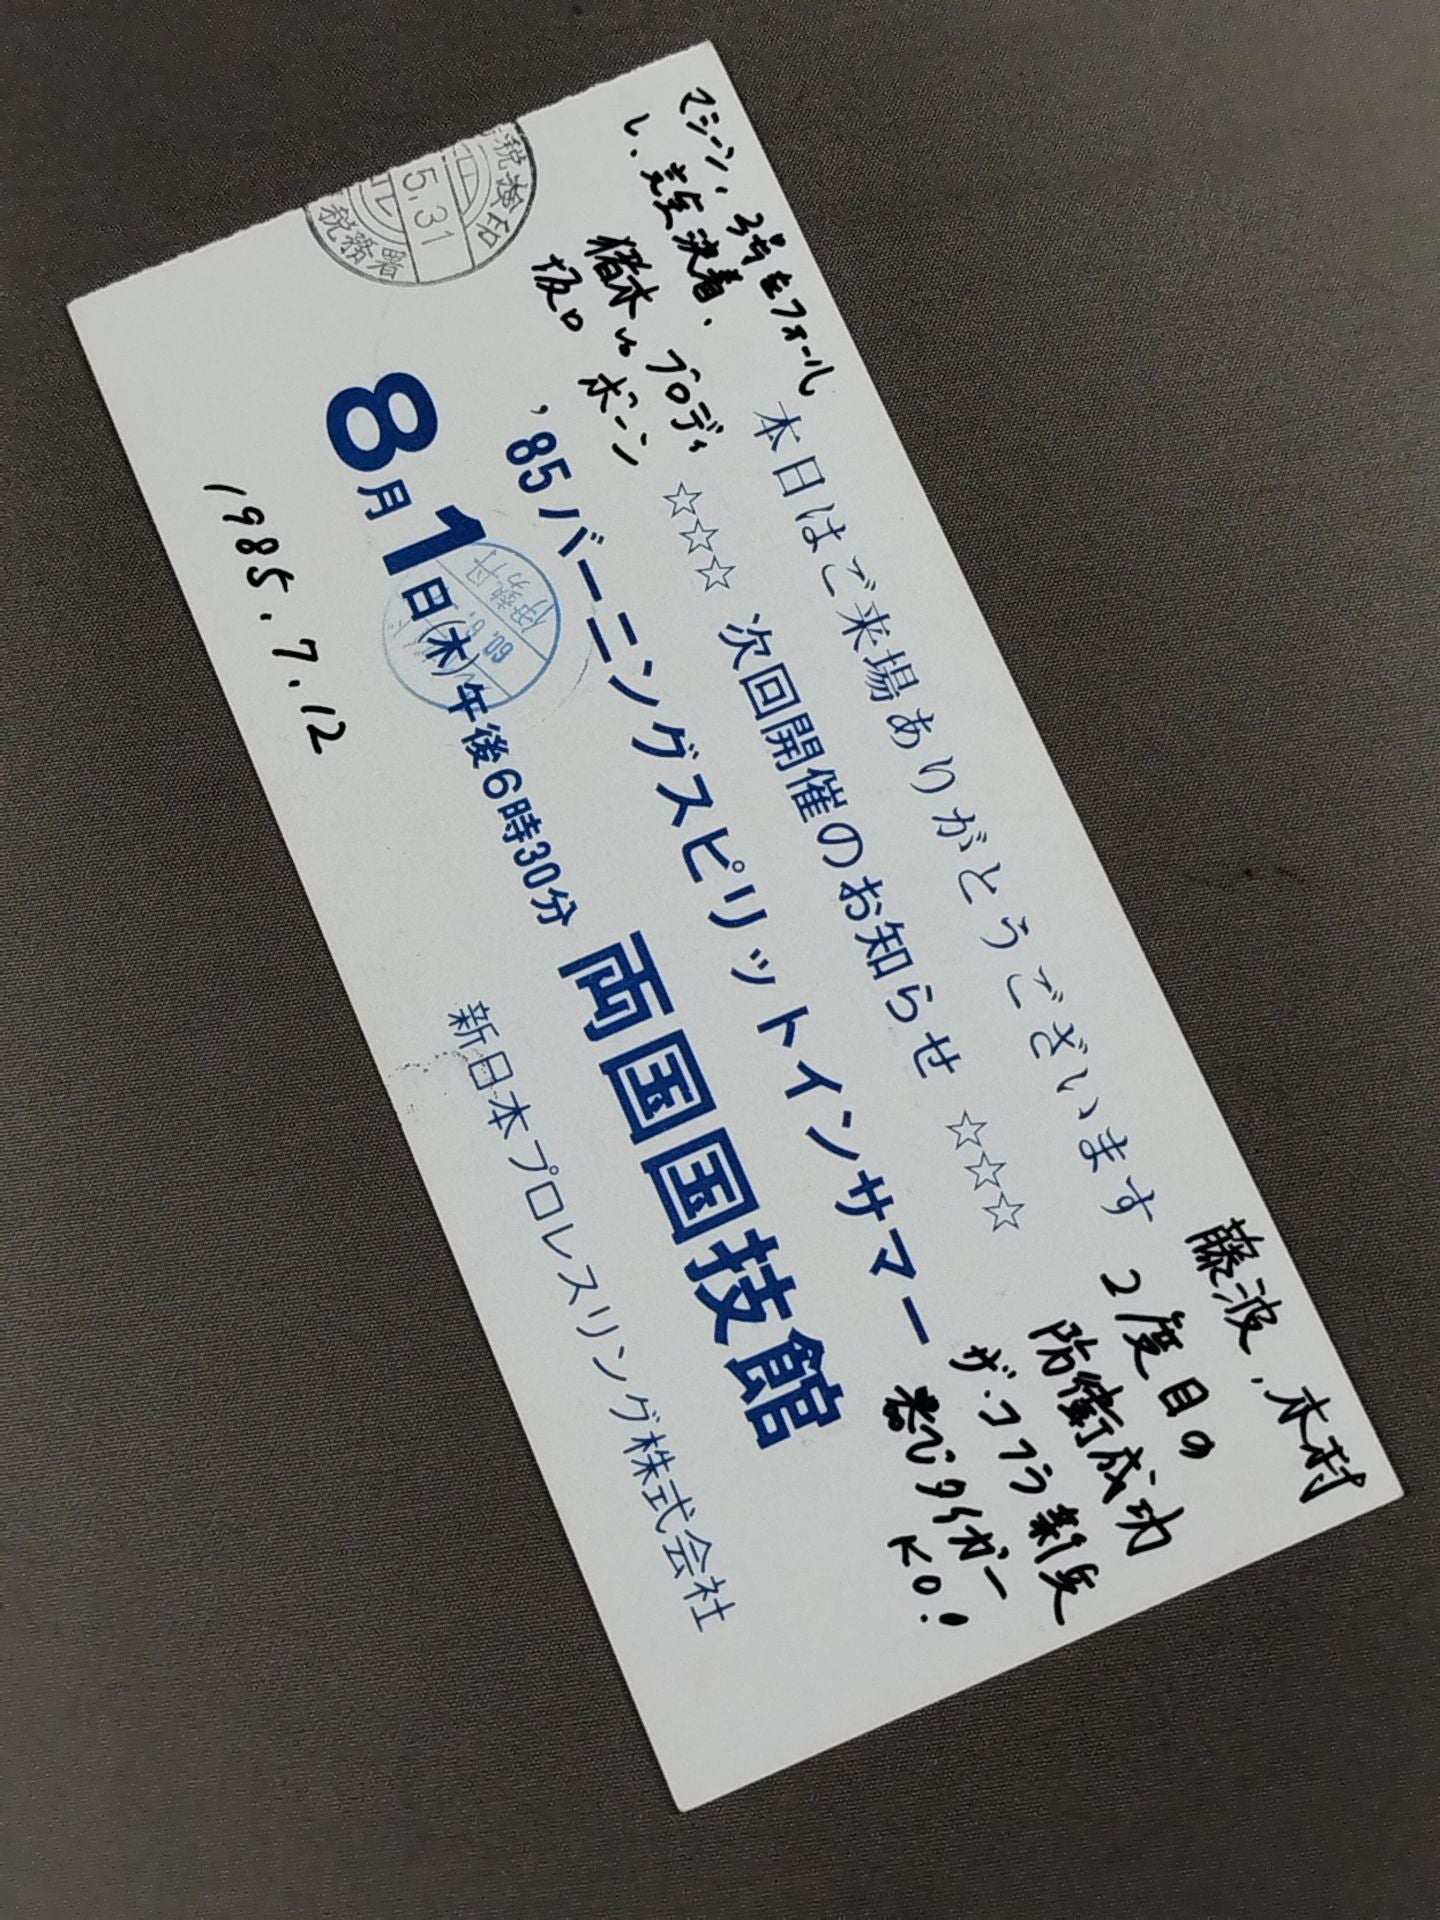 マシーン、3号をフォール
し、差反決着、
猪木vsブロディ
坂口 ボーン
本日はご来場ありがとうございます
☆☆☆ 次回開催のお知らせ ☆☆☆
'85バーニングスピリットインサマー
8月1日(木)午後6時30分 両国国技館
新日本プロレスリング株式会社
1985.7.12
藤波、木村
2度目の
防衛成功
ザ・コブラ新兵
タイガー
KO!
税務署
5.31
税務署
60.6.
伊勢丹